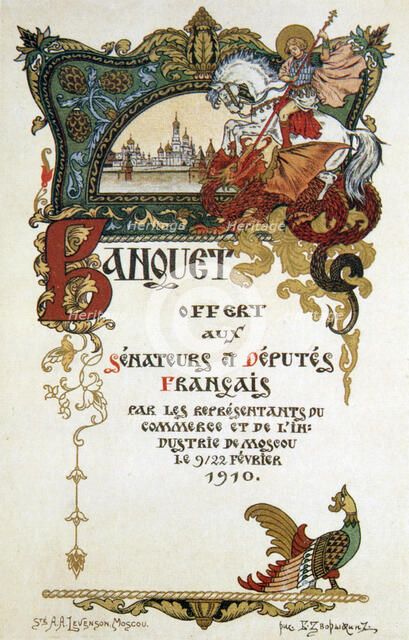 BANQUET
OFFERT
AUX
SÉNATEURS ET DÉPUTÉS
FRANÇAIS
PAR LES REPRÉSENTANTS DU
COMMERCE ET DE L'IN=
DUSTRIE DE MOSCOU
LE 9/22 FÉVRIER
1910.
Sté A.A. LEVENSON, MOSCOU.
рис. Б. Зворыкинъ.
Heritage
Heritage
Heritage
Heritage